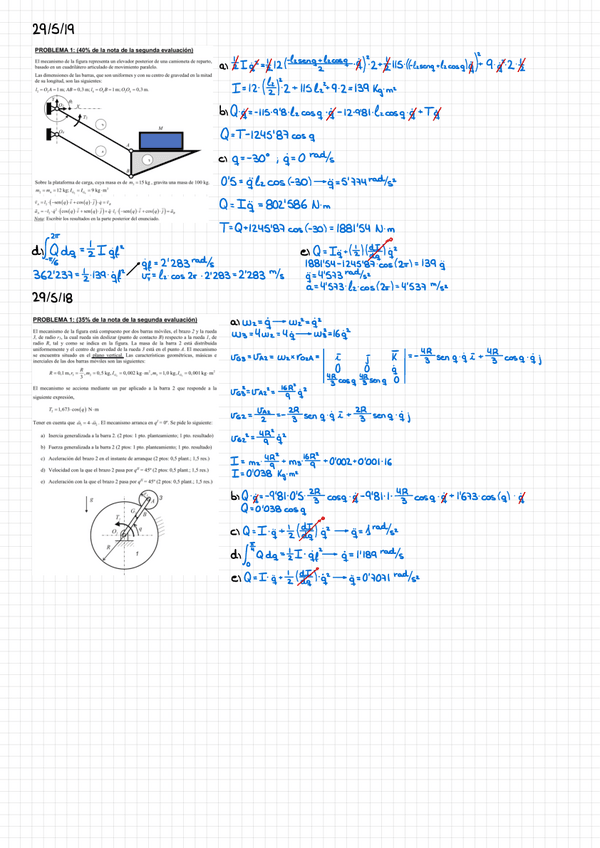 29/5/19
PROBLEMA 1: (40% de la nota de la segunda evaluación)
El mecanismo de la figura representa un elevador posterior de una camioneta de reparto,
basado en un cuadrilátero articulado de movimiento paralelo.
Las dimensiones de las barras, que son uniformes y con su centro de gravedad en la mitad
de su longitud, son las siguientes:
Sobre la plataforma de carga, cuya masa es de m₃ = 15 kg, gravita una masa de 100 kg.
Nota: Escribir los resultados en la parte posterior del enunciado.
I = 12·(l₂/2)²·2 + 115 l₂² + 9·2 = 139 Kg·m²
b) Q·q̇ = -115·9'8·l₂ cos q·q̇ - 12·9'81·l₂ cos q·q̇ + T q̇
Q = T - 1245'87 cos q
c) q = -30° ; q̇ = 0 rad/s
0'5 = q̈ l₂ cos(-30) → q̈ = 5'774 rad/s²
Q = I q̈ = 802'586 N·m
T = Q + 1245'87 cos(-30) = 1881'54 N·m
d) ∫ Q dq = 1/2 I q̇f²
362'237 = 1/2·139·q̇f²
q̇f = 2'283 rad/s
v = l₂·cos 2π·2'283 = 2'283 m/s
e) Q = I q̈ + (1/2)(dI/dq) q̇²
1881'54 - 1245'87 cos(2π) = 139 q̈
q̈ = 4'573 rad/s²
a = 4'573·l₂·cos(2π) = 4'537 m/s²
29/5/18
PROBLEMA 1: (35% de la nota de la segunda evaluación)
El mecanismo de la figura está compuesto por dos barras móviles, el brazo 2 y la rueda
3, de radio r₃, la cual rueda sin deslizar (punto de contacto B) respecto a la rueda 1, de
radio R, tal y como se indica en la figura. La masa de la barra 2 está distribuida
uniformemente y el centro de gravedad de la rueda 3 está en el punto A. El mecanismo
se encuentra situado en el plano vertical. Las características geométricas, másicas e
inerciales de las dos barras móviles son las siguientes:
El mecanismo se acciona mediante un par aplicado a la barra 2 que responde a la
siguiente expresión,
T₂ = 1,673·cos(q) N·m
a) Inercia generalizada a la barra 2. (2 ptos: 1 pto. planteamiento; 1 pto. resultado)
b) Fuerza generalizada a la barra 2 (2 ptos: 1 pto. planteamiento; 1 pto. resultado)
c) Aceleración del brazo 2 en el instante de arranque (2 ptos: 0,5 plant.; 1,5 res.)
d) Velocidad con la que el brazo 2 pasa por q = 45° (2 ptos: 0,5 plant.; 1,5 res.)
e) Aceleración con la que el brazo 2 pasa por q = 45° (2 ptos: 0,5 plant.; 1,5 res.)
a) ω₂ = q̇ → ω₂² = q̇²
ω₃ = 4ω₂ = 4q̇ → ω₃² = 16q̇²
vG3 = vA2 = ω₂ × rO2A = | i j k ; 0 0 q̇ ; 4R/3 cos q 4R/3 sen q 0 | = -4R/3 sen q·q̇ i + 4R/3 cos q·q̇ j
vG3² = vA2² = 16R²/9 q̇²
vG2 = vA2/2 = -2R/3 sen q·q̇ i + 2R/3 sen q·q̇ j
vG2² = 4R²/9 q̇²
I = m₂·4R²/9 + m₃·16R²/9 + 0'002 + 0'001·16
I = 0'038 Kg·m²
b) Q·q̇ = -9'81·0'5·2R/3 cos q·q̇ - 9'81·1·4R/3 cos q·q̇ + 1'673·cos(q)·q̇
Q = 0'038 cos q
c) Q = I·q̈ + 1/2 (dI/dq) q̇² → q̈ = 1 rad/s²
d) ∫ Q dq = 1/2 I·q̇f² → q̇ = 1'189 rad/s
e) Q = I·q̈ + 1/2 (dI/dq)·q̇² → q̈ = 0'7071 rad/s²